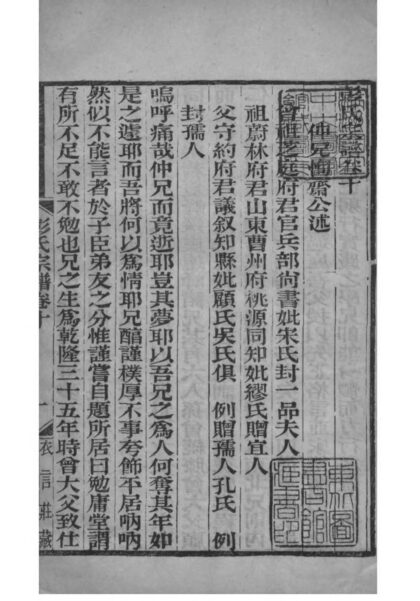 彭氏宗譜卷十
仲兄悔齋公述
曾祖芝庭府君官兵部尙書妣宋氏封一品夫人
祖蔚林府君山東曹州府桃源同知妣繆氏贈宜人
父守約府君議叙知縣妣顧氏吳氏俱 例贈孺人孔氏 例
封孺人
嗚呼痛哉仲兄而竟逝耶豈其夢耶以吾兄之爲人何奪其年如
是之遽耶而吾將何以爲情耶兄醕謹樸厚不事夸飾平居吶吶
然似不能言者於子臣弟友之分惟謹嘗自題所居曰勉庸堂謂
有所不足不敢不勉也兄之生爲乾隆三十五年時曾大父致仕
彭氏宗譜卷十
一
衣言莊藏